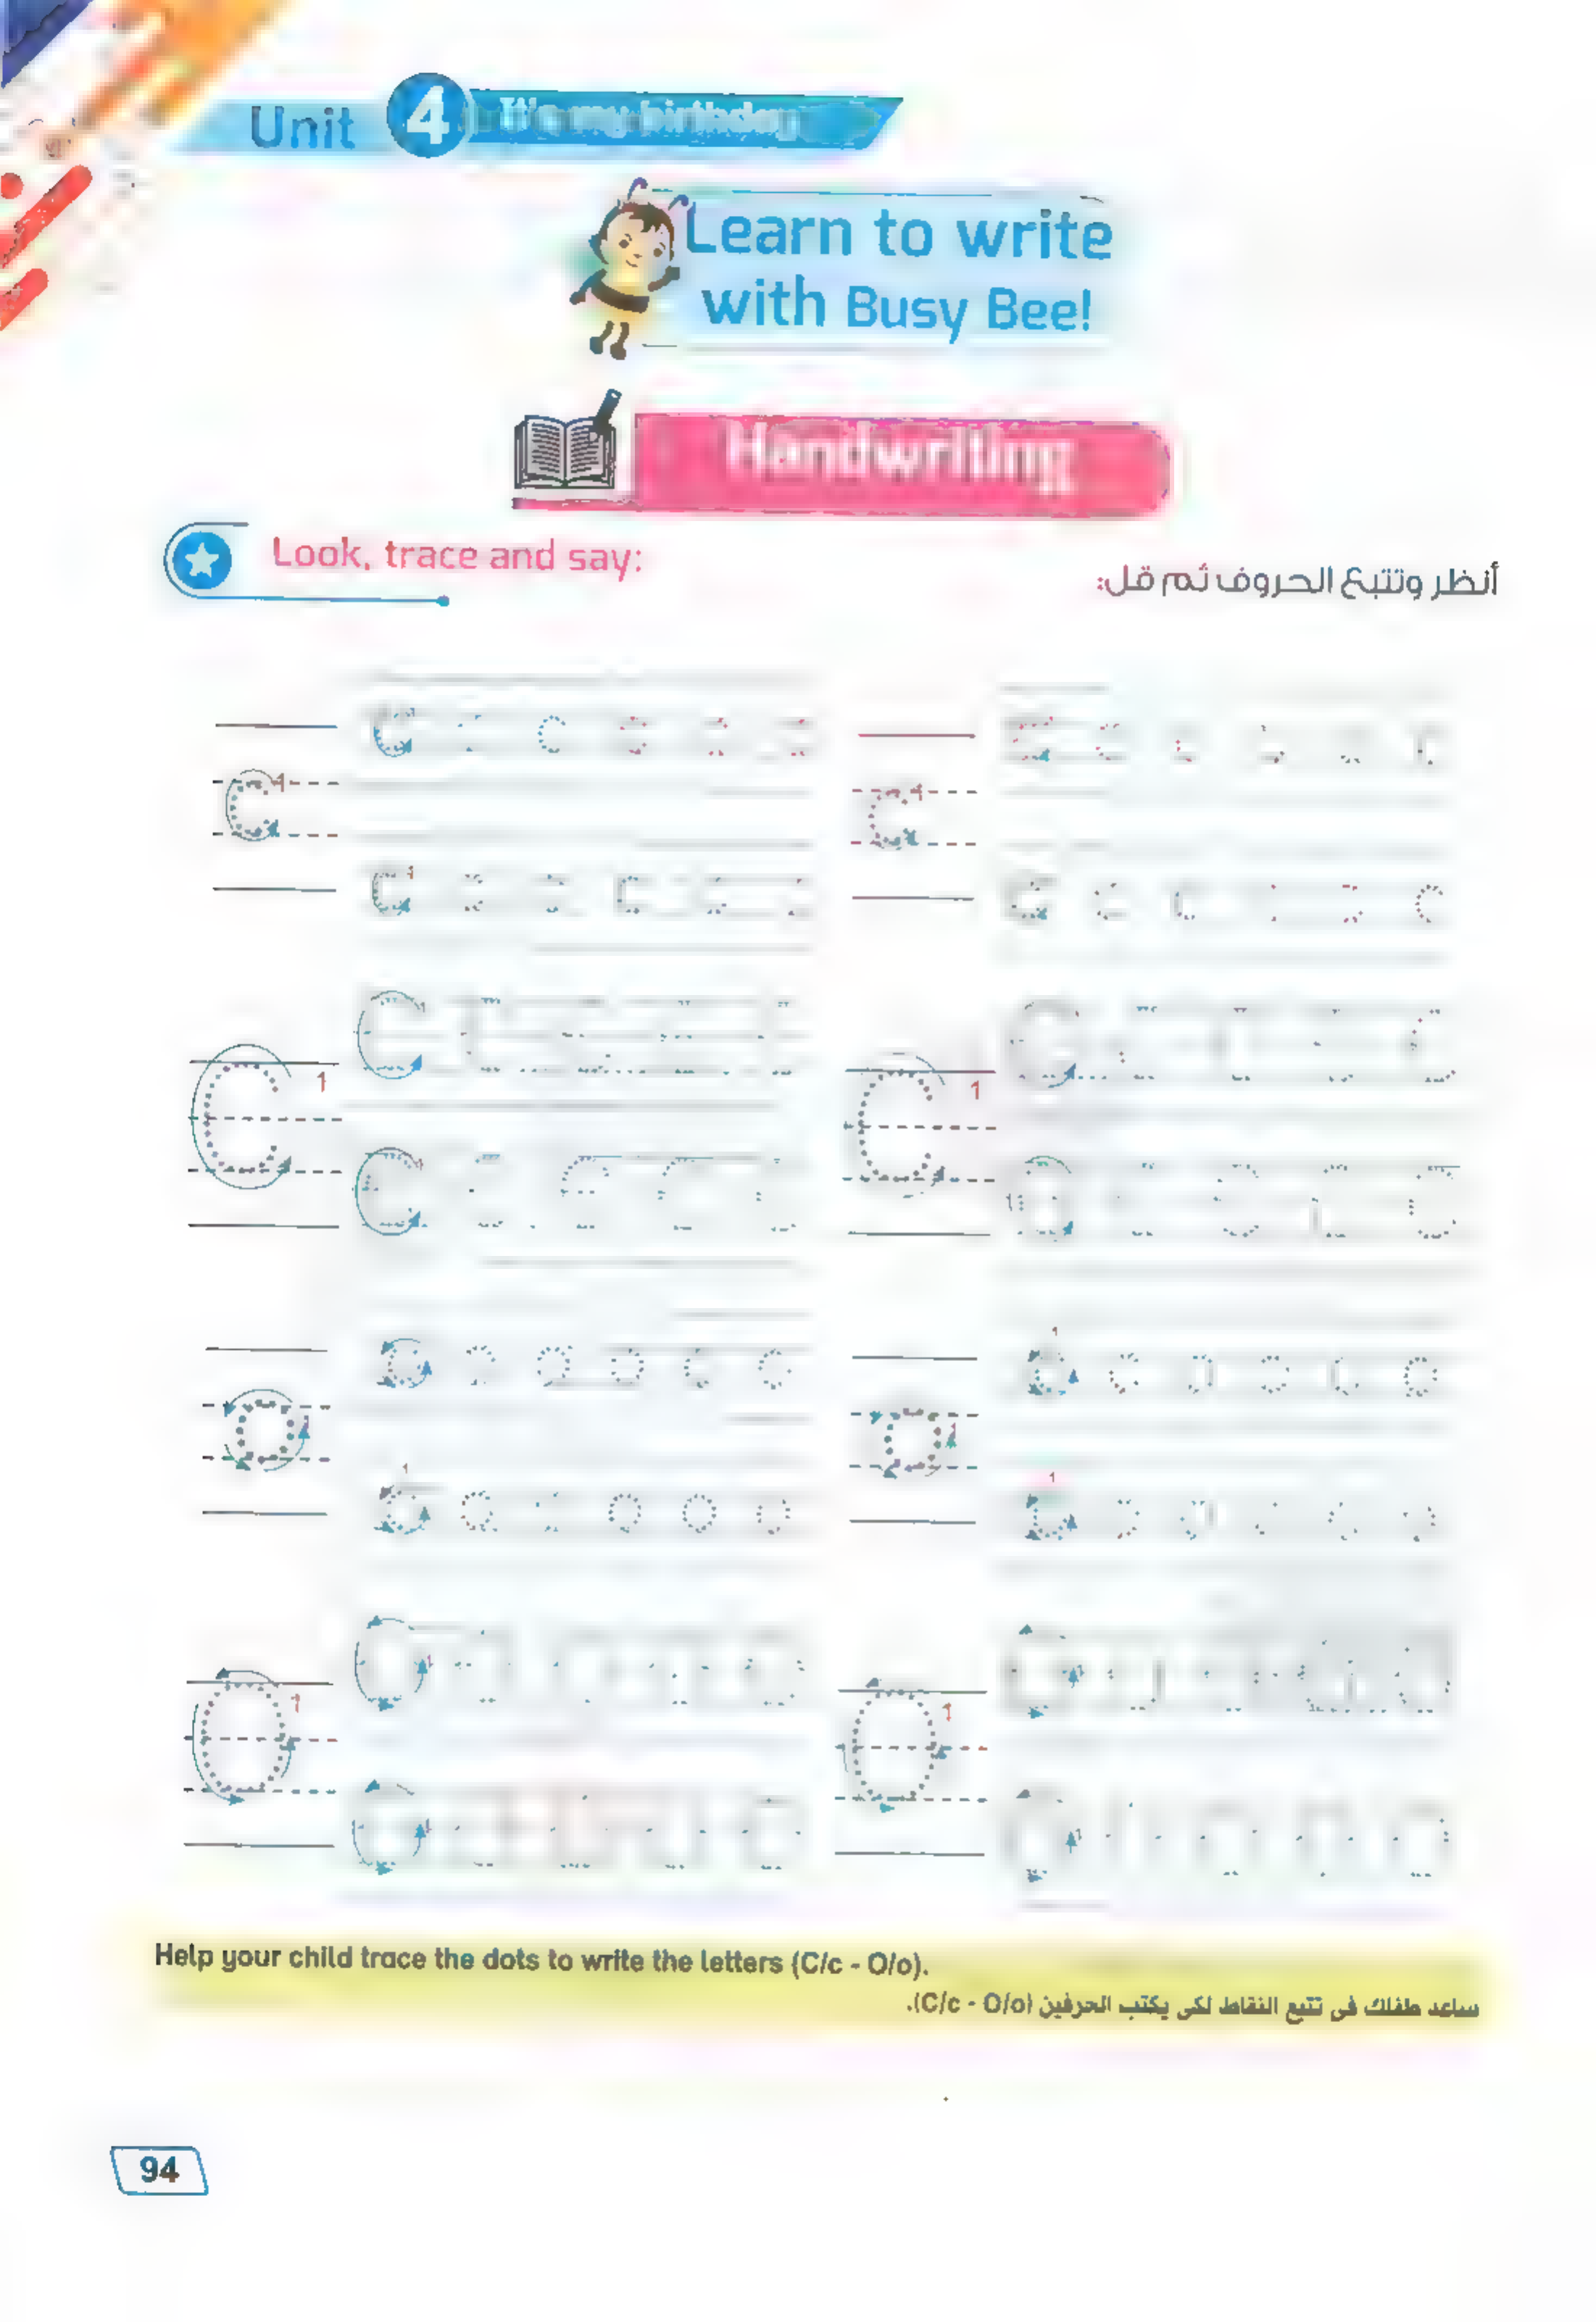 Unit 4 It's my birthday
Learn to write
with Busy Bee!
Handwriting
Look, trace and say:
أنظر وتتبع الحروف ثم قل:
c c
C C
o o
O O
Help your child trace the dots to write the letters (C/c - O/o).
ساعد طفلك فى تتبع النقاط لكى يكتب الحرفين (C/c - O/o).
94